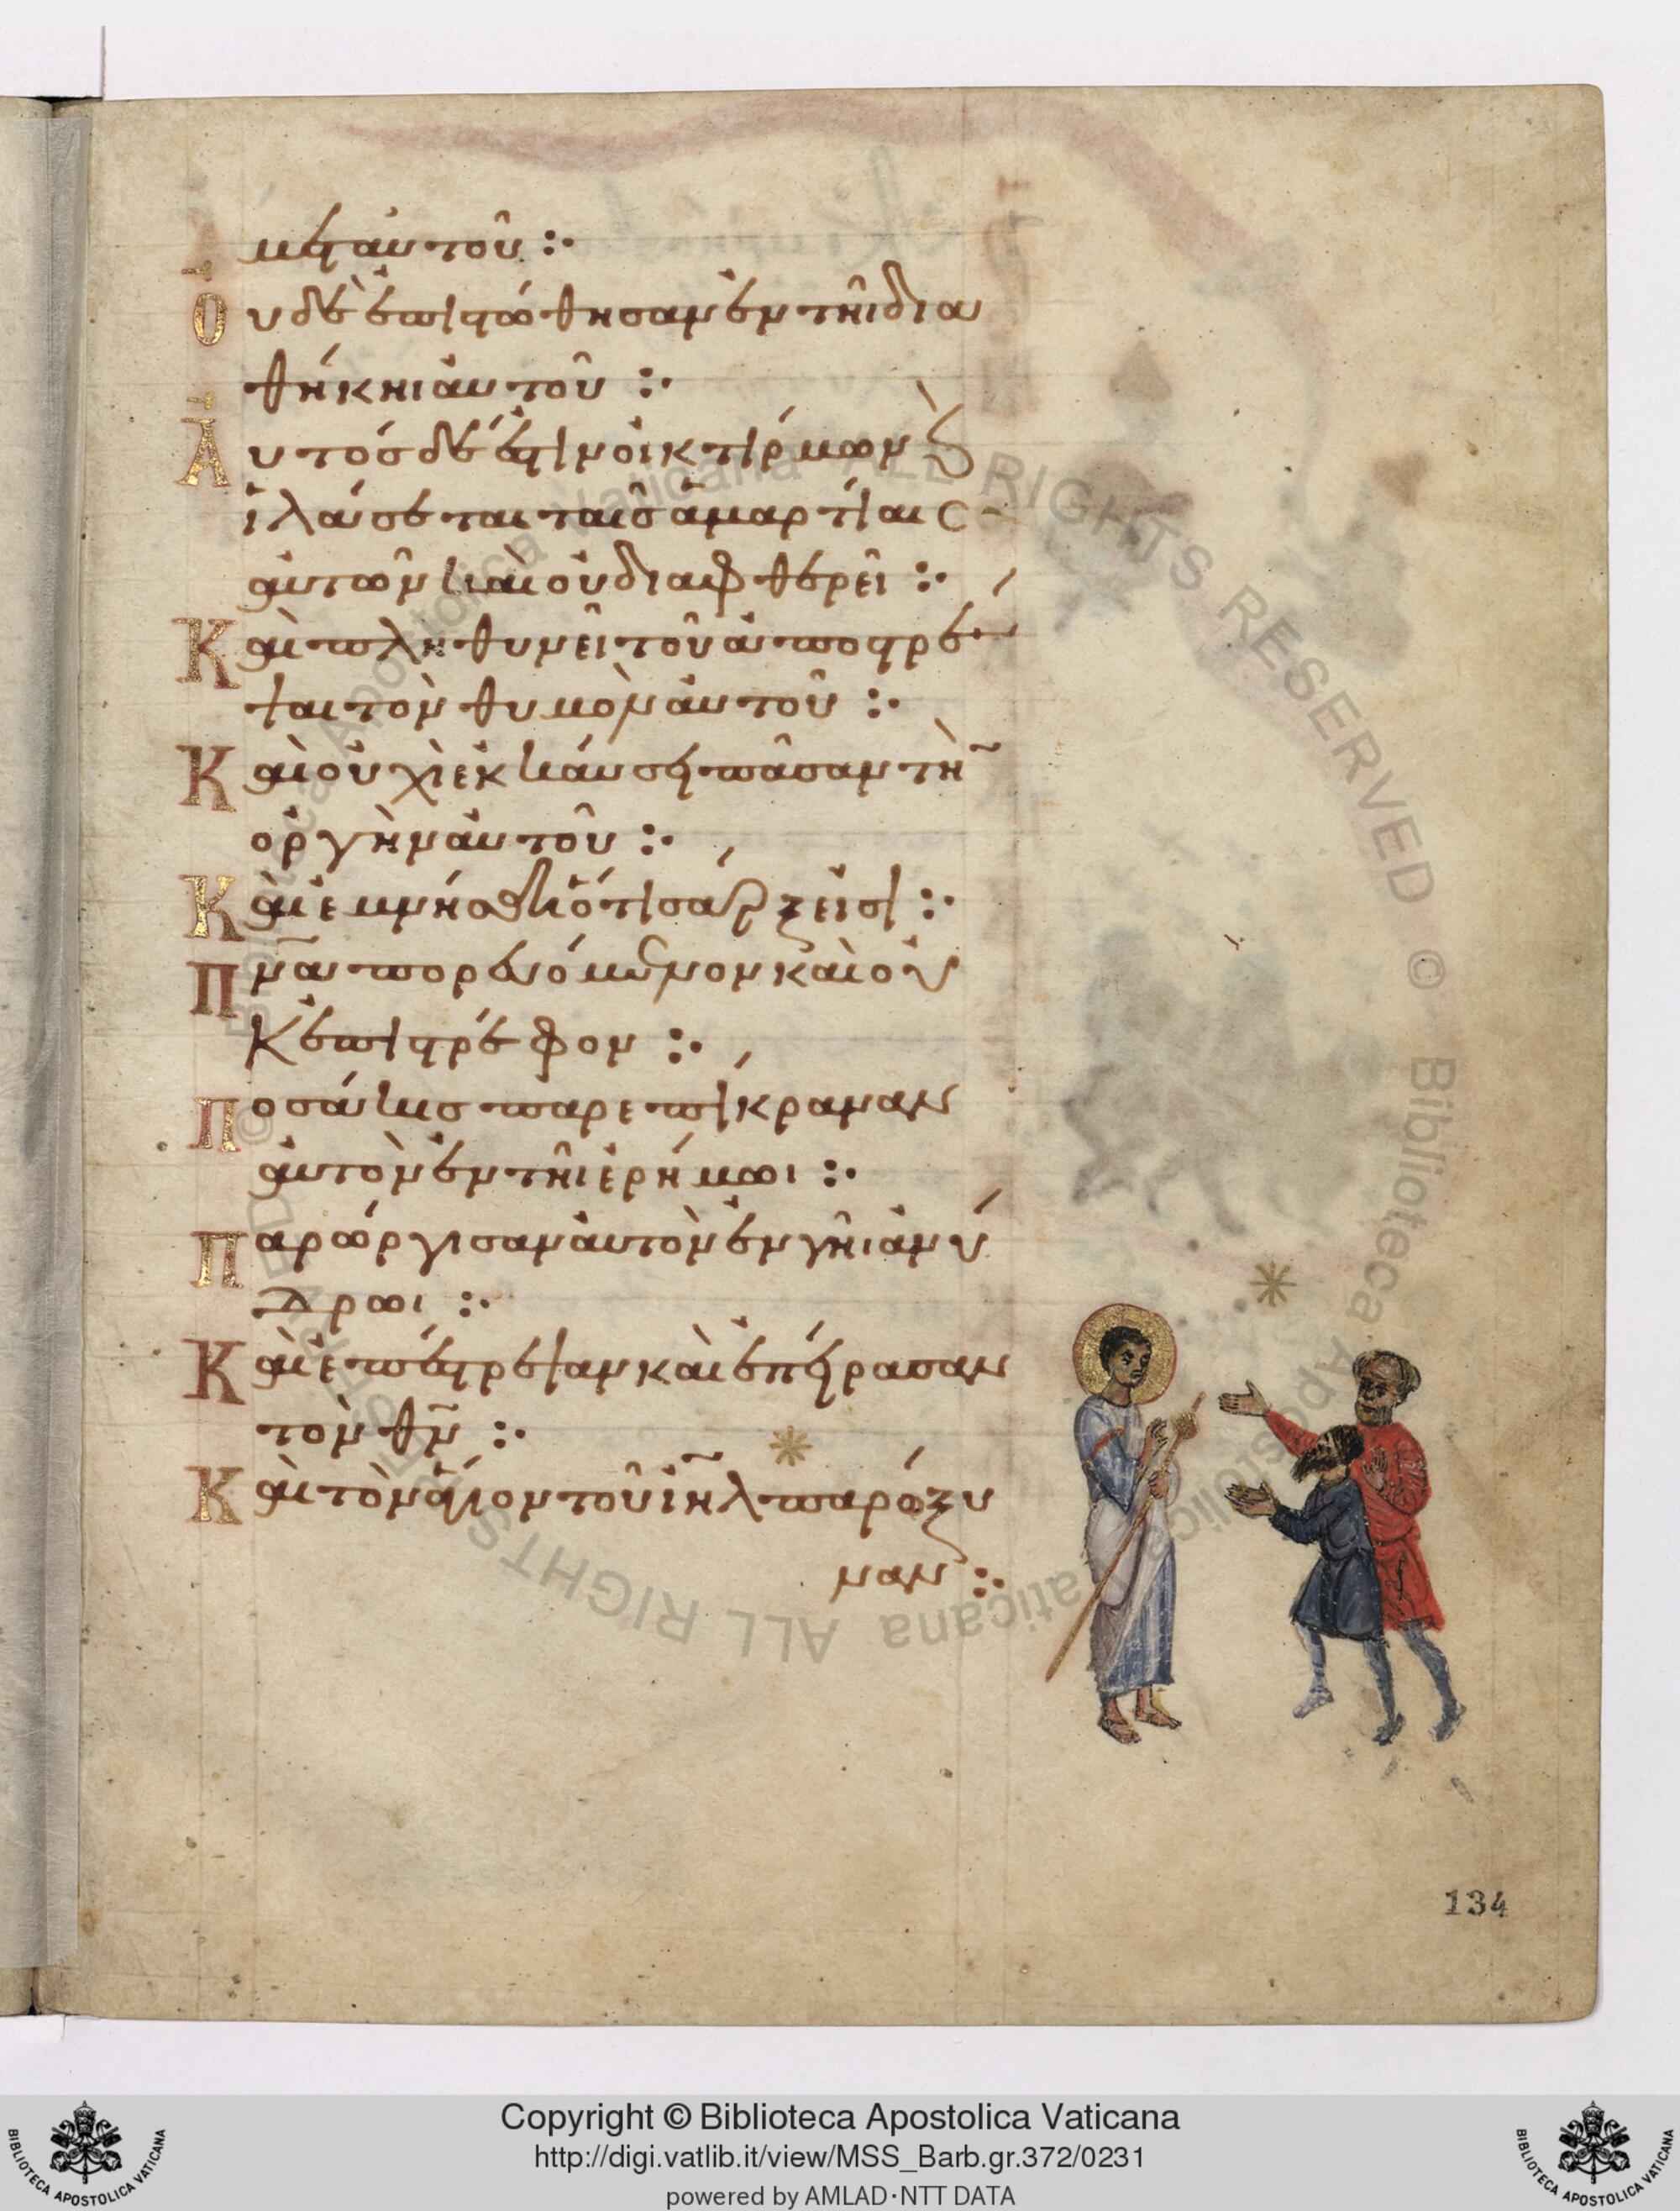 μετ αὐτοῦ :·
Οὐδὲ ἐπιστώθησαν ἐν τῆι δια
θήκηι αὐτοῦ :·
Αὐτός δέ ἐστιν οἰκτίρμων (καὶ)
ἱλάσεται ταῖς ἁμαρτίαις
αὐτῶν καὶ οὐ διαφθερεῖ :·
Καὶ πληθυνεῖ τοῦ ἀποστρέ
ψαι τὸν θυμὸν αὐτοῦ :·
Καὶ οὐχὶ ἐκκαύσει πᾶσαν τὴ̃
ὀργὴν αὐτοῦ :·
Καὶ ἐμνήσθη ὅτι σάρξ εἰσι :·
Πν̅α πορευόμενον καὶ οὐ
κ ἐπιστρέφον :·
Ποσάκις παρεπίκραναν
αὐτὸν ἐν τῆι ἐρήμωι :·
Παρώργισαν αὐτὸν ἐν γῆι ἀνύ
δρωι :·
Καὶ ἐπέστρεψαν καὶ ἐπείρασαν
τὸν θ̅ν̅ :·
Καὶ τὸν ἅγιον τοῦ ἰη̅λ παρώξυ
ναν :·
134
© Biblioteca Apostolica Vaticana ALL RIGHTS RESERVED © Biblioteca Apostolica Vaticana ALL RIGHTS RESERVED
Copyright © Biblioteca Apostolica Vaticana
http://digi.vatlib.it/view/MSS_Barb.gr.372/0231
powered by AMLAD·NTT DATA
BIBLIOTECA APOSTOLICA VATICANA
BIBLIOTECA APOSTOLICA VATICANA